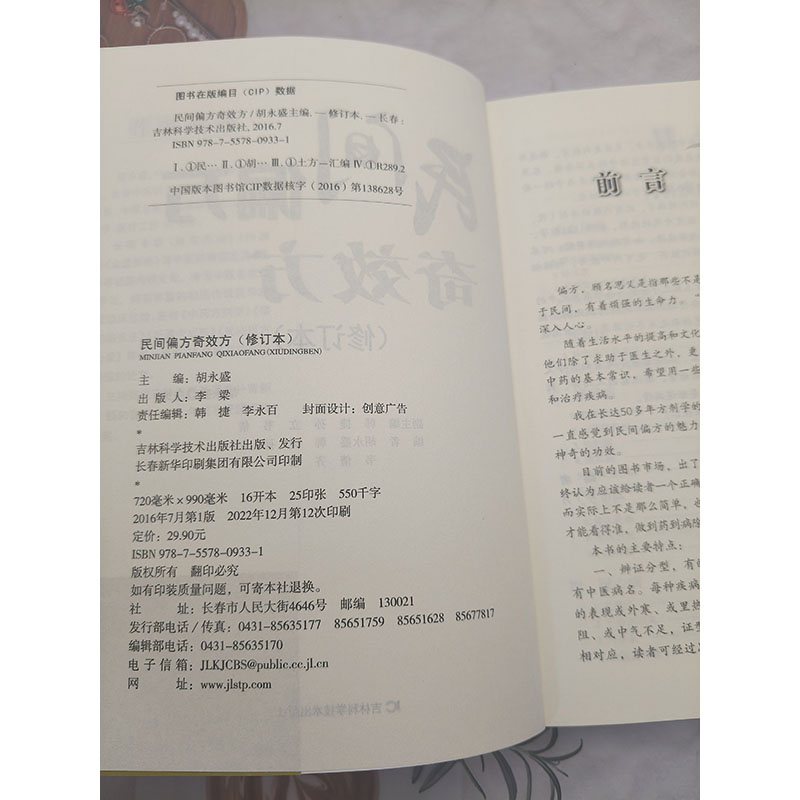 图书在版编目（CIP）数据
民间偏方奇效方/胡永盛主编.—修订本.—长春：
吉林科学技术出版社，2016.7
ISBN 978-7-5578-0933-1
Ⅰ.①民… Ⅱ.①胡… Ⅲ.①土方—汇编 Ⅳ.①R289.2
中国版本图书馆CIP数据核字（2016）第138628号
民间偏方奇效方（修订本）
MINJIAN PIANFANG QIXIAOFANG(XIUDINGBEN)
主 编：胡永盛
出 版 人：李 梁
责任编辑：韩 捷 李永百 封面设计：创意广告
*
吉林科学技术出版社出版、发行
长春新华印刷集团有限公司印制
*
720毫米×990毫米 16开本 25印张 550千字
2016年7月第1版 2022年12月第12次印刷
定价：29.90元
ISBN 978-7-5578-0933-1
版权所有 翻印必究
如有印装质量问题，可寄本社退换。
社 址：长春市人民大街4646号 邮编 130021
发行部电话/传真：0431-85635177 85651759 85651628 85677817
编辑部电话：0431-85635170
电子信箱：JLKJCBS@public.cc.jl.cn
网 址：www.jlstp.com
前言
偏方，顾名思义是指那些不是
于民间，有着顽强的生命力。
深入人心。
随着生活水平的提高和文化
他们除了求助于医生之外，更
中药的基本常识，希望用一些
和治疗疾病。
我在长达50多年方剂学的
一直感觉到民间偏方的魅力
神奇的功效。
目前的图书市场，出了
终认为应该给读者一个正确
而实际上不是那么简单，也
才能看得准，做到药到病除
本书的主要特点：
一、辨证分型，有
有中医病名。每种疾病
的表现或外寒、或里热
阻、或中气不足，证型
相对应，读者可经过